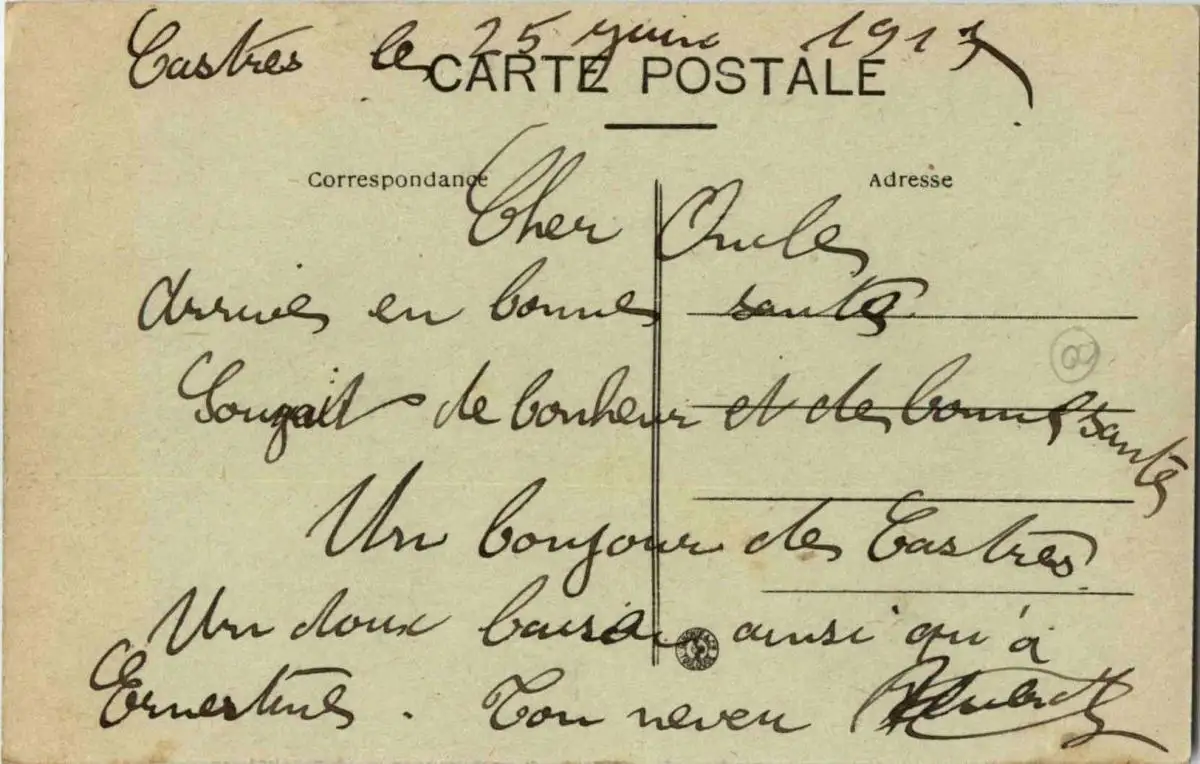 Castres le 25 juin 191
CARTE POSTALE
Correspondance
Adresse
Cher Oncle
Arrivés en bonne santé
Souhait de bonheur et de bonne santé
Un bonjour de Castres
Un doux baiser ainsi qu'à
Ernestine. Ton neveu